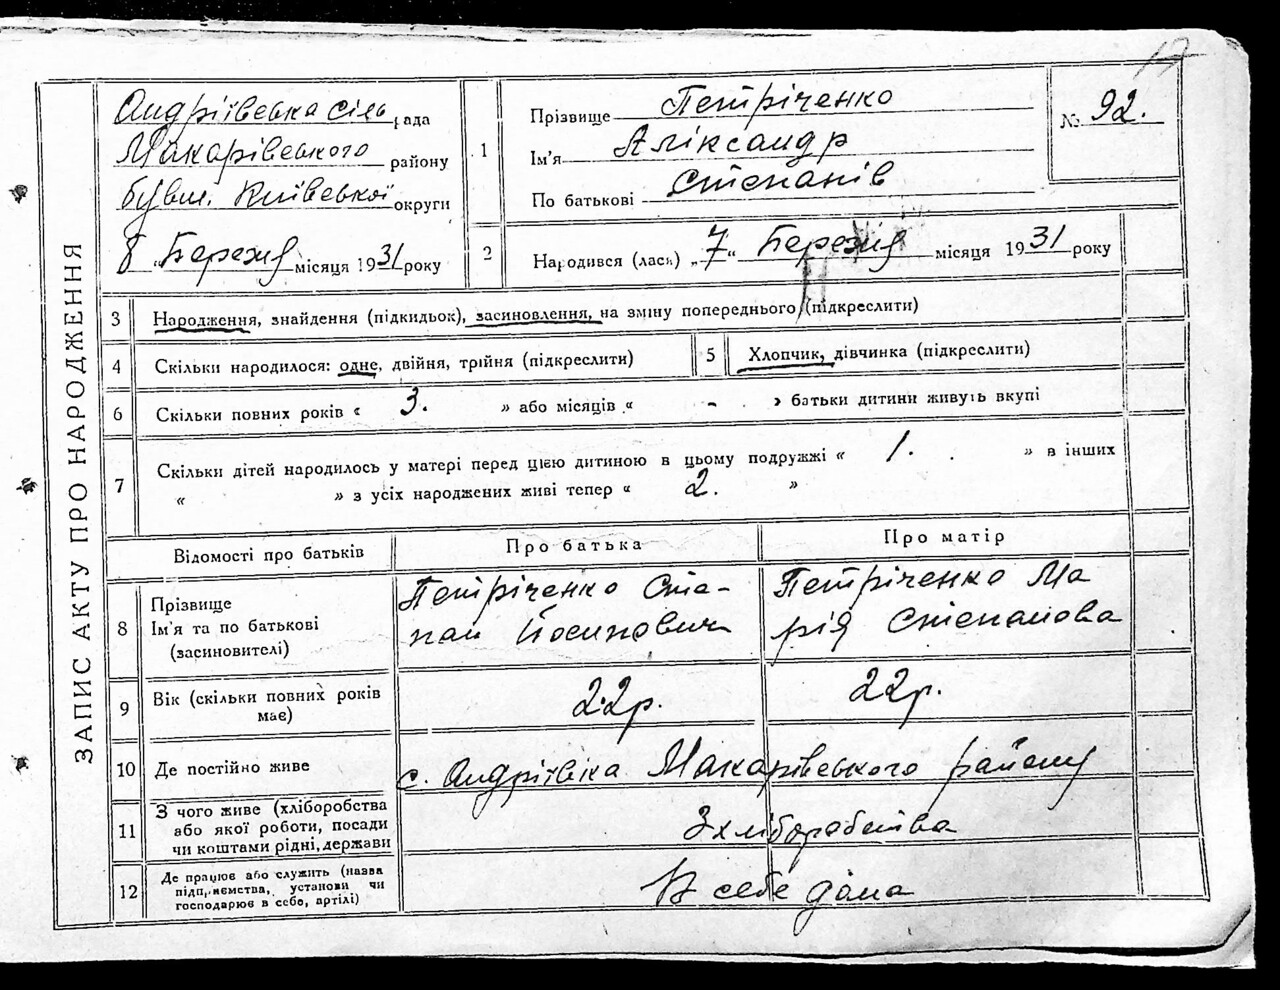 17
ЗАПИС АКТУ ПРО НАРОДЖЕННЯ
Андріївська сіль рада
Макарівського району
бувш. Київської округи
8 „Березня місяця 1931 року
1 Прізвище Петріченко
Ім'я Аліксандр
По батькові Степанів
№ 92.
2 Народився (лась) „7“ Березня місяця 1931 року
3 Народження, знайдення (підкидьок), засиновлення, на зміну попереднього (підкреслити)
4 Скільки народилося: одне, двійня, трійня (підкреслити)
5 Хлопчик, дівчинка (підкреслити)
6 Скільки повних років « 3. » або місяців « - » батьки дитини живуть вкупі
7 Скільки дітей народилось у матері перед цією дитиною в цьому подружжі « 1. » в інших
« » з усіх народжених живі тепер « 2. »
Відомості про батьків Про батька Про матір
8 Прізвище
Ім'я та по батькові
(засиновителі)
Петріченко Сте-
пан Йосипович
Петріченко Ма
рія Степанова
9 Вік (скільки повних років
має)
22р.
22р.
10 Де постійно живе с. Андріївка Макарівського району
11 З чого живе (хліборобства
або якої роботи, посади
чи коштами рідні, держави
З хліборобства
12 Де працює або служить (назва
підприємства, установи чи
господарює в себе, артілі)
В себе дома